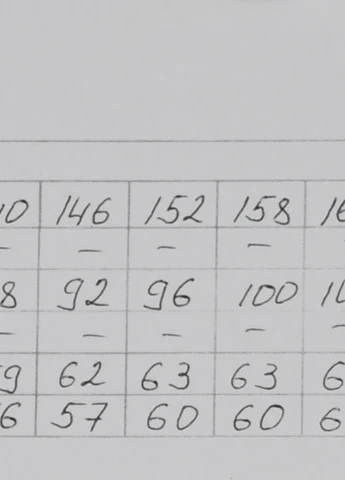 40 146 152 158 16
– – – –
8 92 96 100 10
– – – – –
59 62 63 63 6
56 57 60 60 6